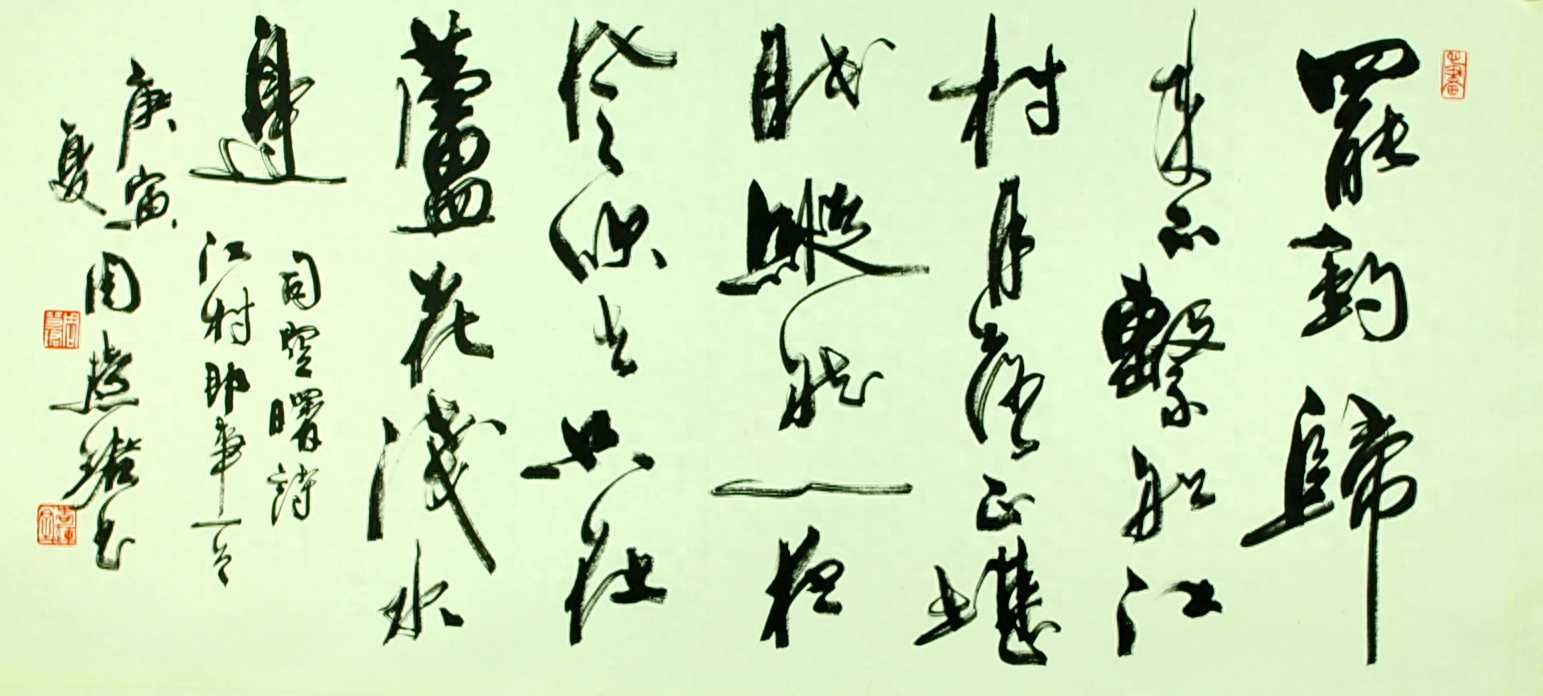 罷釣歸
来不繫船江
村月落正堪
眠縱然一夜
風吹去只在
蘆花淺水
邊
司空曙詩
江村即事一首
庚寅
夏
周慧珺书